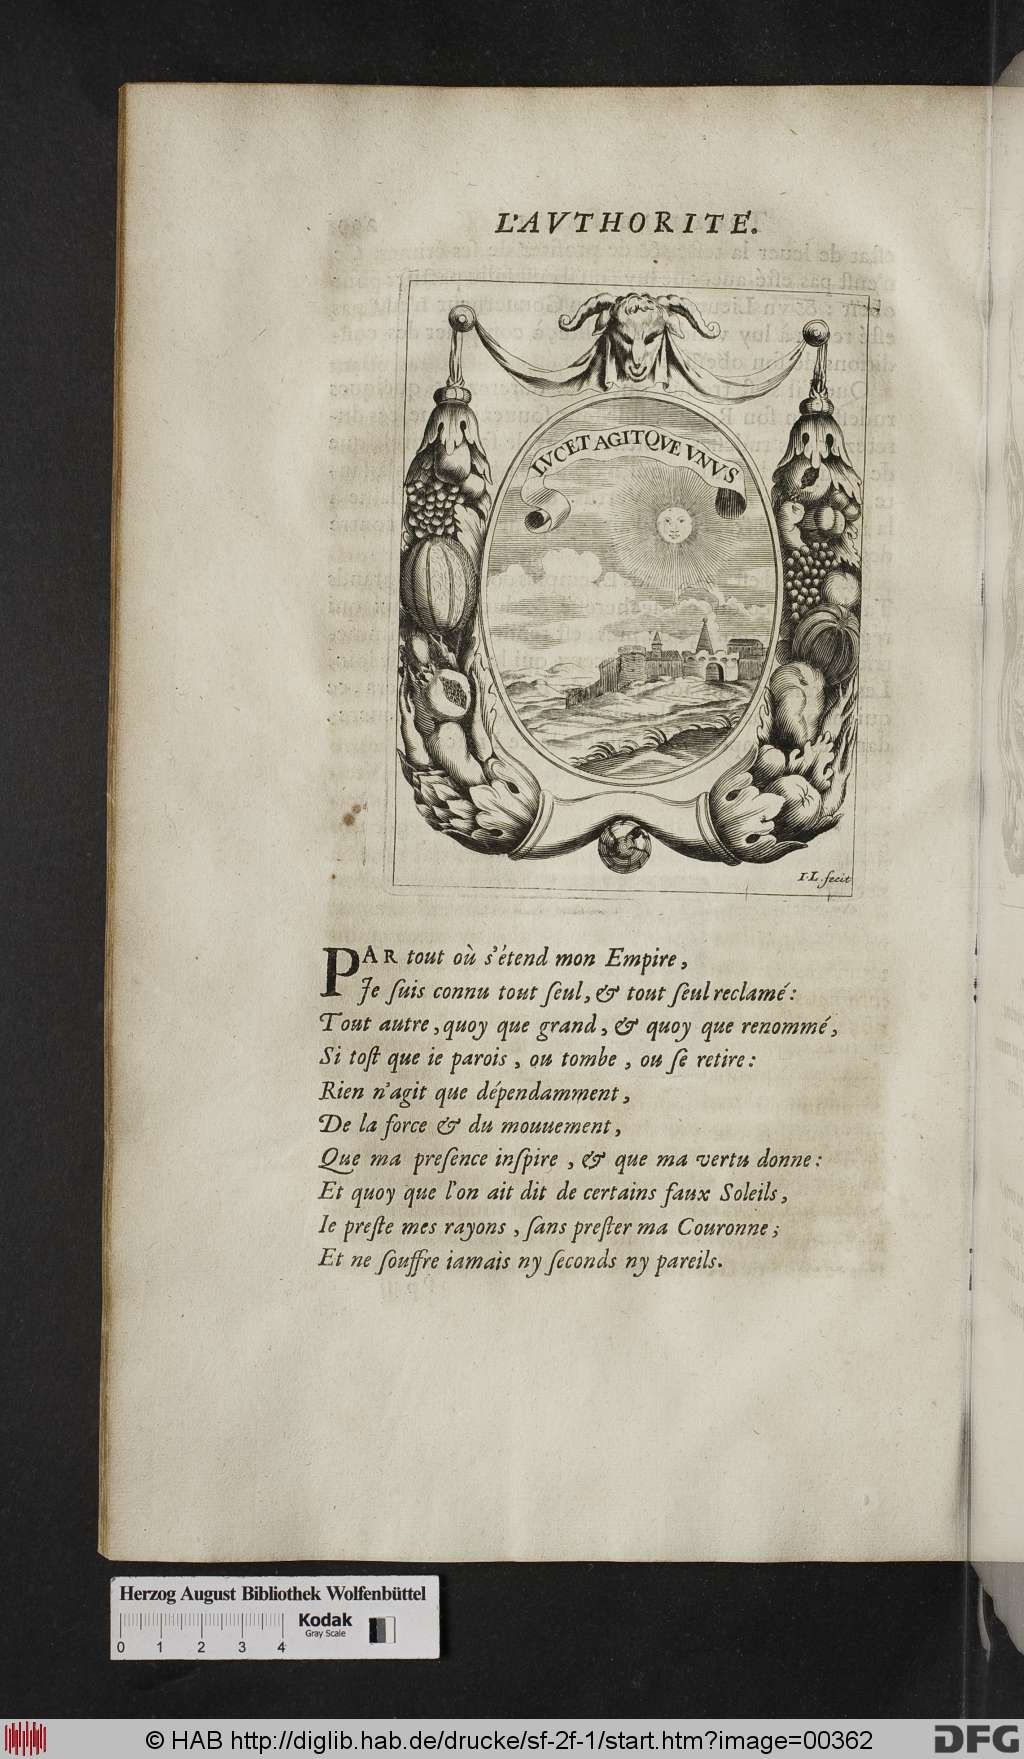 L'AVTHORITÉ.
LVCET AGITQVE VNVS
I·L. fecit
PAR tout où s'étend mon Empire,
Je ſuis connu tout ſeul, & tout ſeul reclamé:
Tout autre, quoy que grand, & quoy que renommé,
Si toſt que ie parois, ou tombe, ou ſe retire:
Rien n'agit que dépendamment,
De la force & du mouuement,
Que ma preſence inſpire, & que ma vertu donne:
Et quoy que l'on ait dit de certains faux Soleils,
Ie preſte mes rayons, ſans preſter ma Couronne;
Et ne ſouffre iamais ny ſeconds ny pareils.
Herzog August Bibliothek Wolfenbüttel
Kodak
Gray Scale
0 1 2 3 4
© HAB http://diglib.hab.de/drucke/sf-2f-1/start.htm?image=00362
DFG